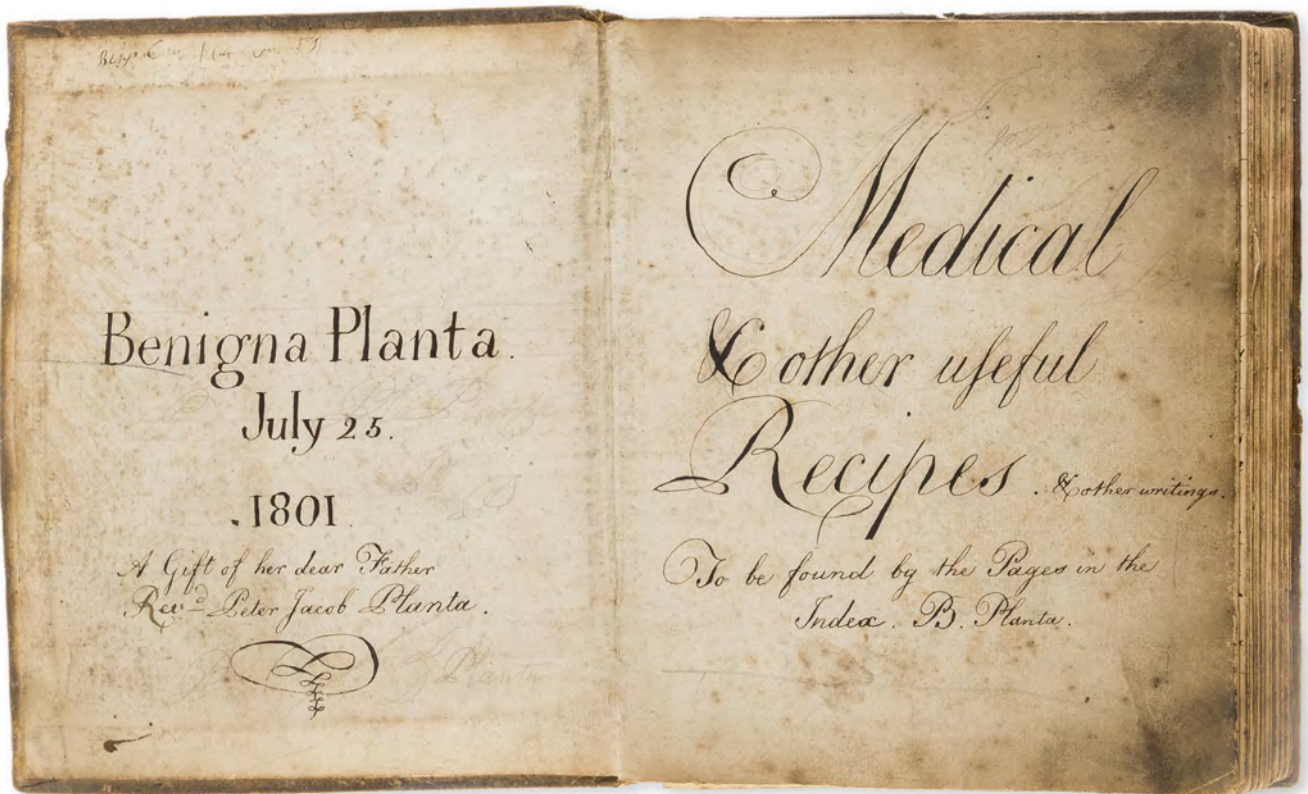 Benigna Planta.
July 25.
.1801.
A Gift of her dear Father
Revd Peter Jacob Planta.
Planta
Medical
& other useful
Recipes. & other writings.
To be found by the Pages in the
Index. B. Planta.